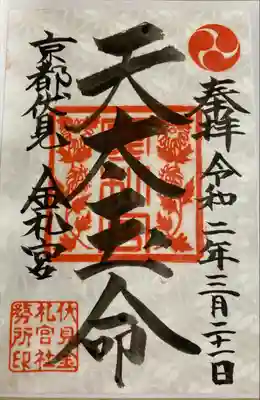 奉拝 令和二年三月二十一日
天太玉命
京都伏見 金札宮
金札宮
伏見金
札宮社
務所印